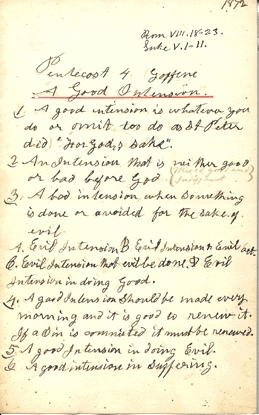 1872
Rom VIII. 18-23.
Luke V. 1-11.
Pentecost 4. Goffine
A Good Intension.
1. A good intension is whatever you
do or omit, too do as St Peter
did, "For God,s sake".
2 An Intension that is neither good
or bad before God
3. A bad intension, when something
is done or avoided for the sake of
evil.
A. Evil Intension B Evil Intension to Evil act.
C. Evil Intension that evil be done, D Evil
Intension in doing Good.
4. A good Intension should be made every
morning and it is good to renew it.
If a Sin is commited it must be renewed.
5. A good Intension in doing Evil.
6. A good intensione in Suffering.